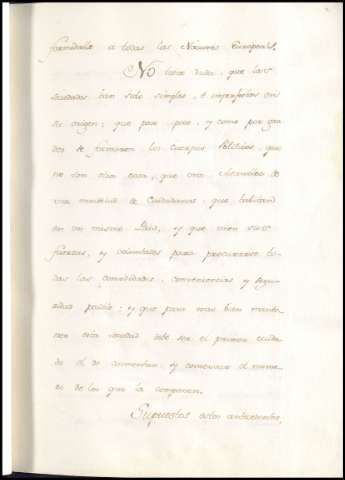 formidable a todas las Naciones Europeas.
No tiene duda, que las
sociedades han sido simples, e imperfectas en
su origen; que poco a poco, y como por gra
dos se formaron los cuerpos Politicos, que
no son otra cosa, que una Asamblea de
una multitud de Ciudadanos, que habitan
en un mismo Pais, y que unen sus
fuerzas, y voluntades para procurarse to
das las comodidades, conveniencias y segu
ridad posible; y que para mas bien mante
ner esta sociedad debe ser el primer cuida
do el de aumentar, y conservar el nume
ro de los que la componen.
Supuestos estos antecedentes,